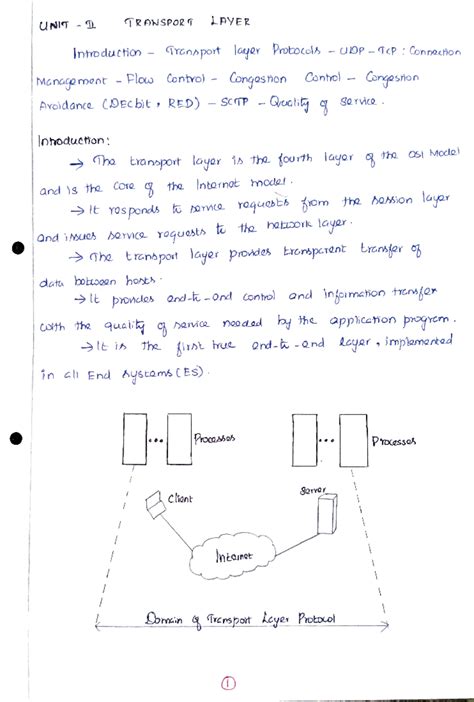 UNIT - II TRANSPORT LAYER
Introduction - Transport layer Protocols - UDP - TCP : Connection
Management - Flow Control - Congestion Control - Congestion
Avoidance (DECbit, RED) - SCTP - Quality of Service.
Introduction:
→ The transport layer is the fourth layer of the OSI Model
and is the Core of the Internet model.
→ It responds to service requests from the session layer
and issues service requests to the network layer.
→ The transport layer provides transparent transfer of
data between hosts.
→ It provides end-to-end control and information transfer
with the quality of service needed by the application program.
→ It is the first true end-to-end layer, implemented
in all End Systems (ES).
Processes
Processes
Client
Server
Internet
Domain of Transport Layer Protocol
1